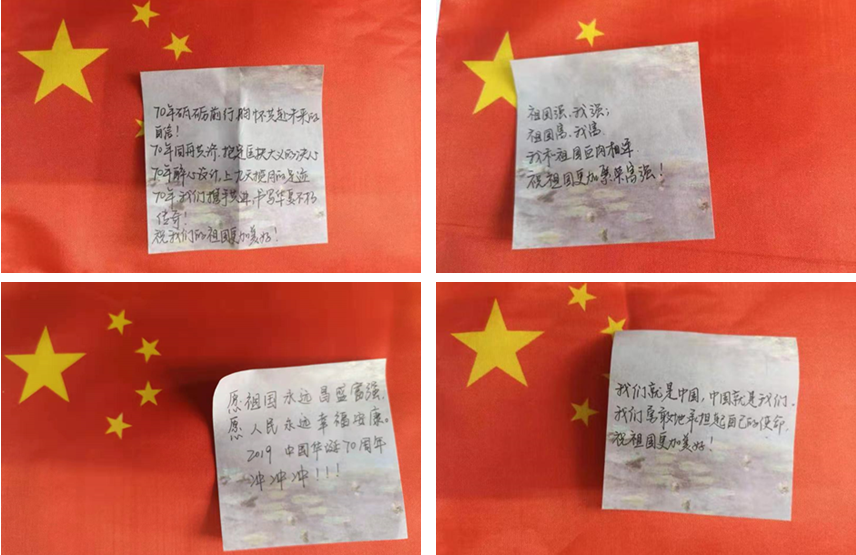 70年砥砺前行,胸怀共赴未来的
百倍!
70年同舟共济,把定民族大义的决心
70年醉心设计,上九天揽月的足迹
70年我们携手共进,书写华夏不朽
传奇!
祝我们的祖国更加美好!
祖国强,我强;
祖国富,我富,
我和祖国血肉相连
祝祖国更加繁荣富强!
愿祖国永远昌盛富强,
愿人民永远幸福安康。
2019 中国华诞70周年
冲冲冲!!!
我们就是中国,中国就是我们。
我们勇敢地承担起自己的使命
祝祖国更加美好!